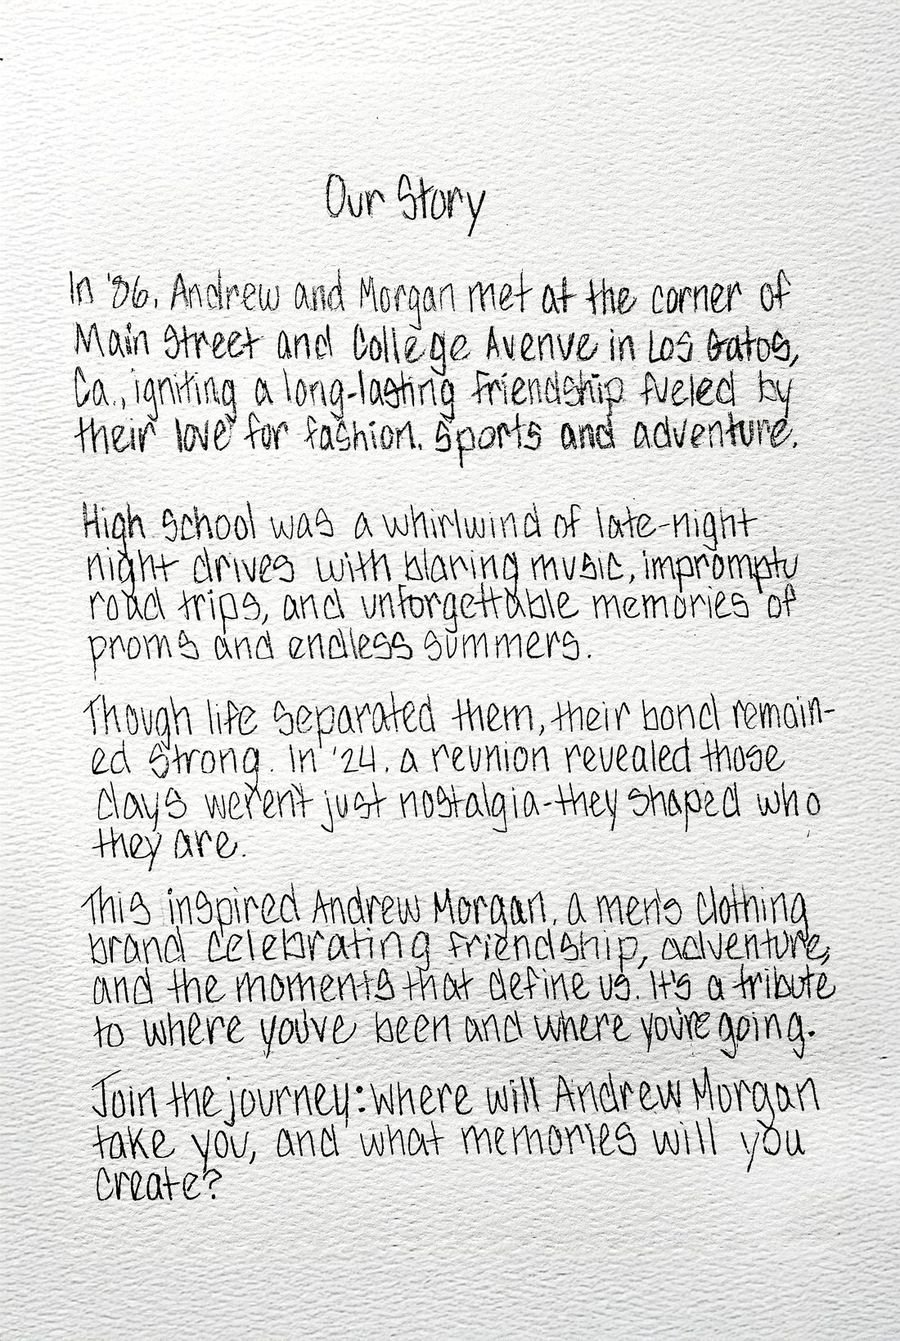 Our Story
In '86, Andrew and Morgan met at the corner of
Main Street and College Avenue in Los Gatos,
Ca., igniting a long-lasting friendship fueled by
their love for fashion, sports and adventure.
High School was a whirlwind of late-night
night drives with blaring music, impromptu
road trips, and unforgettable memories of
proms and endless summers.
Though life separated them, their bond remain-
ed strong. In '24, a reunion revealed those
days weren't just nostalgia-they shaped who
they are.
This inspired Andrew Morgan, a men's clothing
brand celebrating friendship, adventure,
and the moments that define us. It's a tribute
to where you've been and where you're going.
Join the journey: Where will Andrew Morgan
take you, and what memories will you
create?